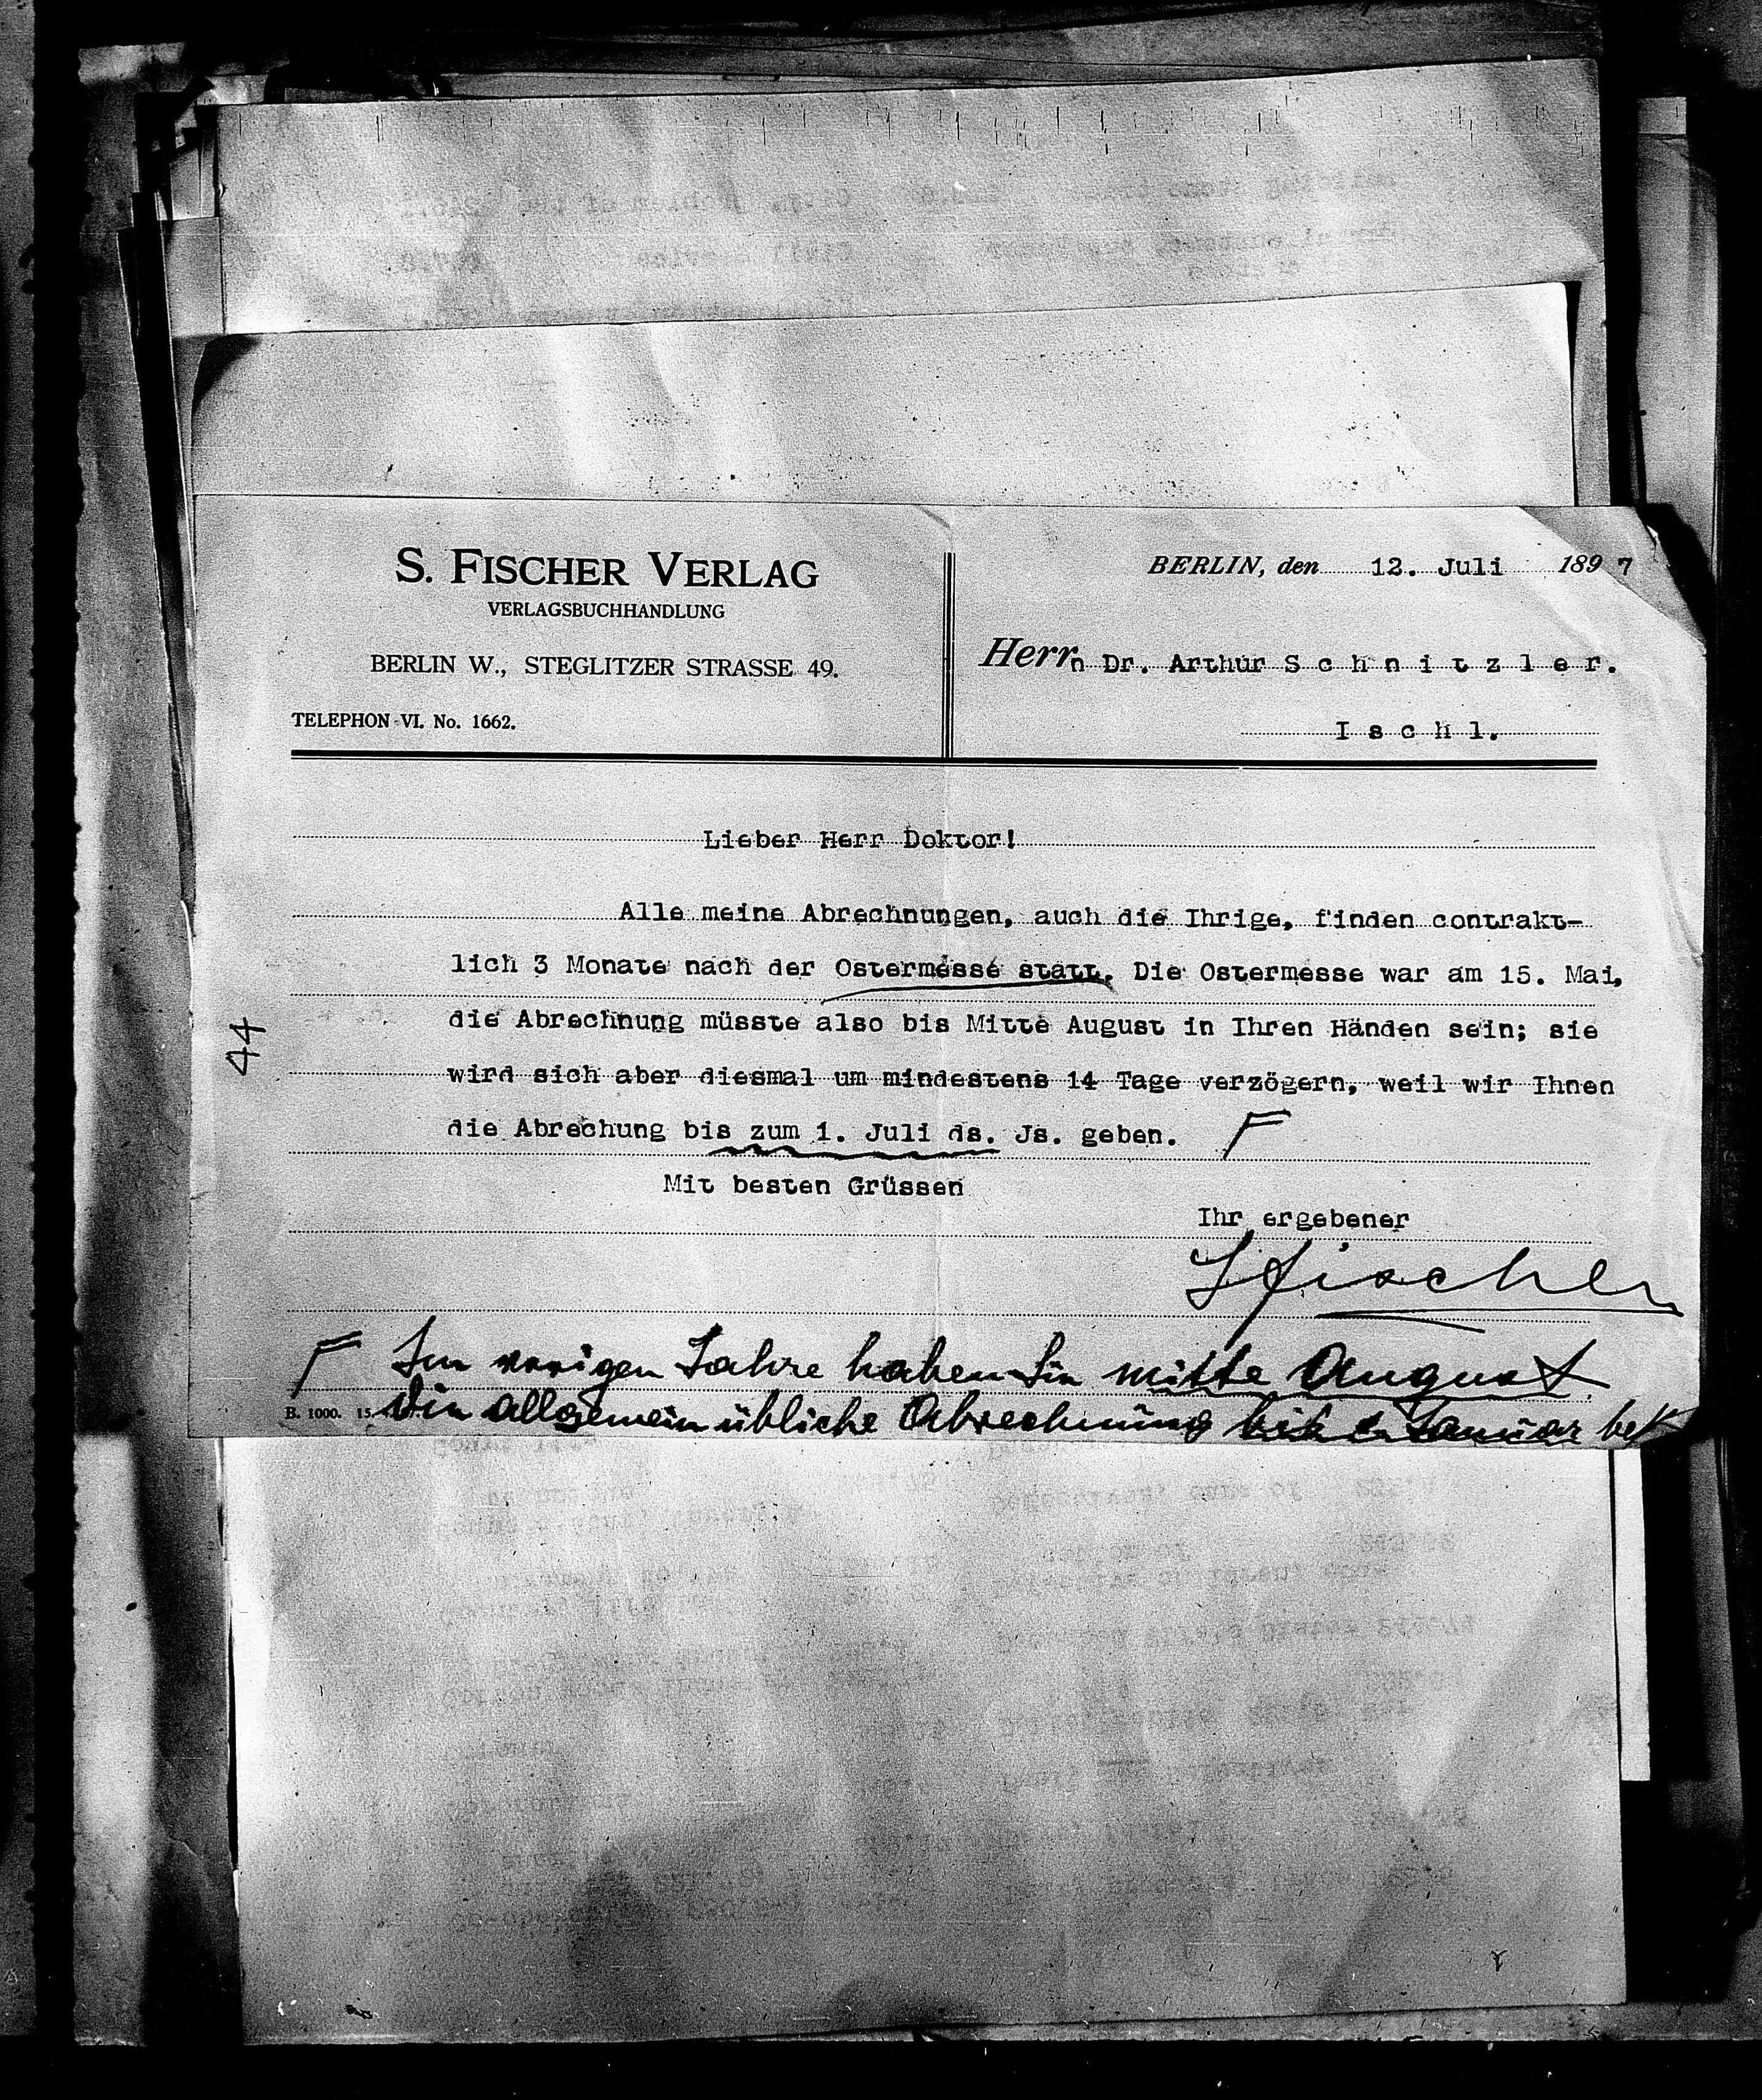 S. FISCHER VERLAG
VERLAGSBUCHHANDLUNG
BERLIN W., STEGLITZER STRASSE 49.
TELEPHON VI. No. 1662.
BERLIN, den 12. Juli 1897
Herrn Dr. Arthur Schnitzler.
Ischl.
Lieber Herr Doktor!
Alle meine Abrechnungen, auch die Ihrige, finden contrakt-
lich 3 Monate nach der Ostermesse statt. Die Ostermesse war am 15. Mai,
die Abrechnung müsste also bis Mitte August in Ihren Händen sein; sie
wird sich aber diesmal um mindestens 14 Tage verzögern, weil wir Ihnen
die Abrechung bis zum 1. Juli ds. Js. geben.
44
Mit besten Grüssen
Ihr ergebener
SFischer
Im vorigen Jahre haben Sie mitte August
die allgemein übliche Abrechnung bis Januar
B. 1000. 15.